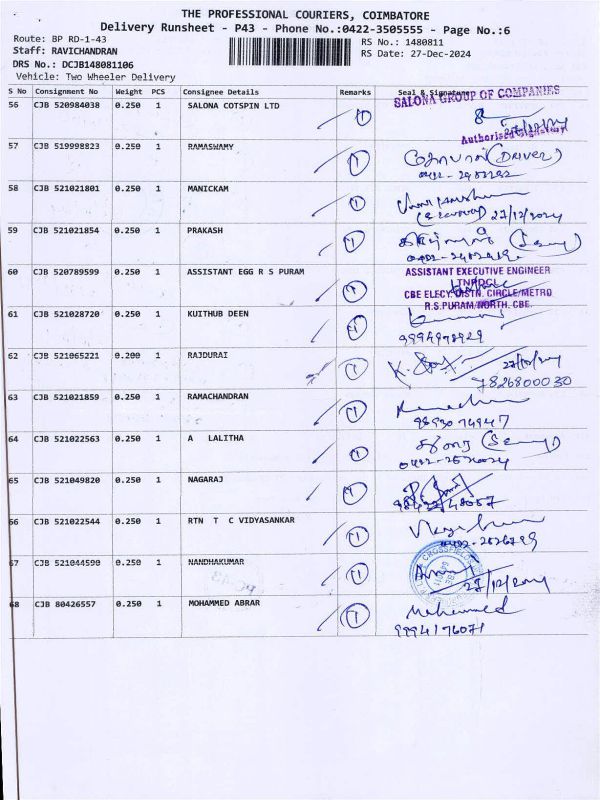 THE PROFESSIONAL COURIERS, COIMBATORE
Delivery Runsheet - P43 - Phone No.:0422-3505555 - Page No.:6
Route: BP RD-1-43
RS No.: 1480811
Staff: RAVICHANDRAN
RS Date: 27-Dec-2024
DRS No.: DCJB148081106
Vehicle: Two Wheeler Delivery
S No Consignment No Weight PCS Consignee Details Remarks Seal & Signature
56 CJB 520984038 0.250 1 SALONA COTSPIN LTD 1 SALONA GROUP OF COMPANIES
Authorised Signatory
57 CJB 519998823 0.250 1 RAMASWAMY 1 (DRIVER)
58 CJB 521021801 0.250 1 MANICKAM 1
27/12/2024
59 CJB 521021854 0.250 1 PRAKASH 1
60 CJB 520789599 0.250 1 ASSISTANT EGG R S PURAM 1 ASSISTANT EXECUTIVE ENGINEER
TNPDCL
CBE ELECY. DISTN. CIRCLE/METRO
R.S.PURAM/NORTH. CBE.
61 CJB 521028720 0.250 1 KUITHUB DEEN 1
9994978929
62 CJB 521065221 0.200 1 RAJDURAI 1
7826800030
63 CJB 521021859 0.250 1 RAMACHANDRAN 1
64 CJB 521022563 0.250 1 A LALITHA 1
65 CJB 521049820 0.250 1 NAGARAJ 1
66 CJB 521022544 0.250 1 RTN T C VIDYASANKAR 1
67 CJB 521044590 0.250 1 NANDHAKUMAR 1
27/12/2024
68 CJB 80426557 0.250 1 MOHAMMED ABRAR 1 Mohammed
9994176071